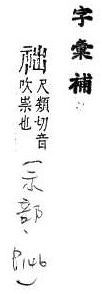 字彙補
尺類切音
吹祟也
(示部、
P146)